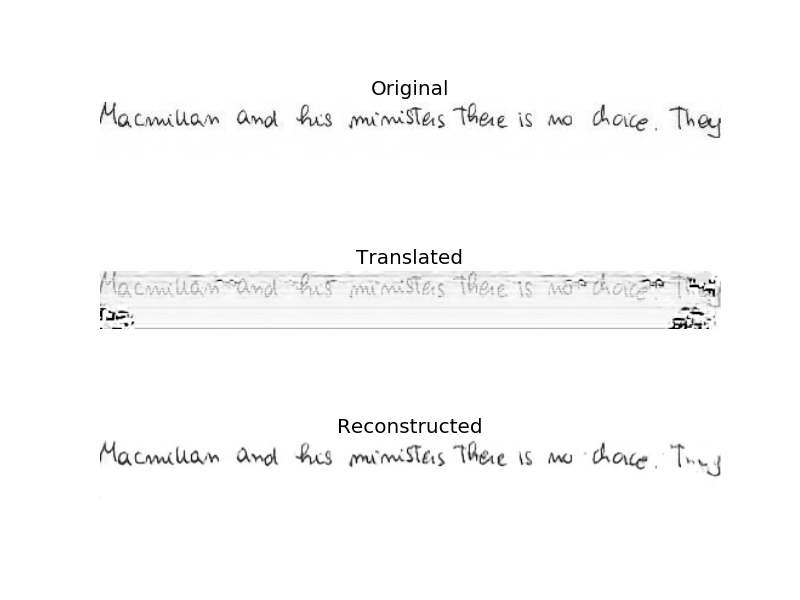 Original
Macmillan and his ministers There is no choice. They
Translated
Macmillan and his ministers There is no choice.
Reconstructed
Macmillan and his ministers There is no choice.